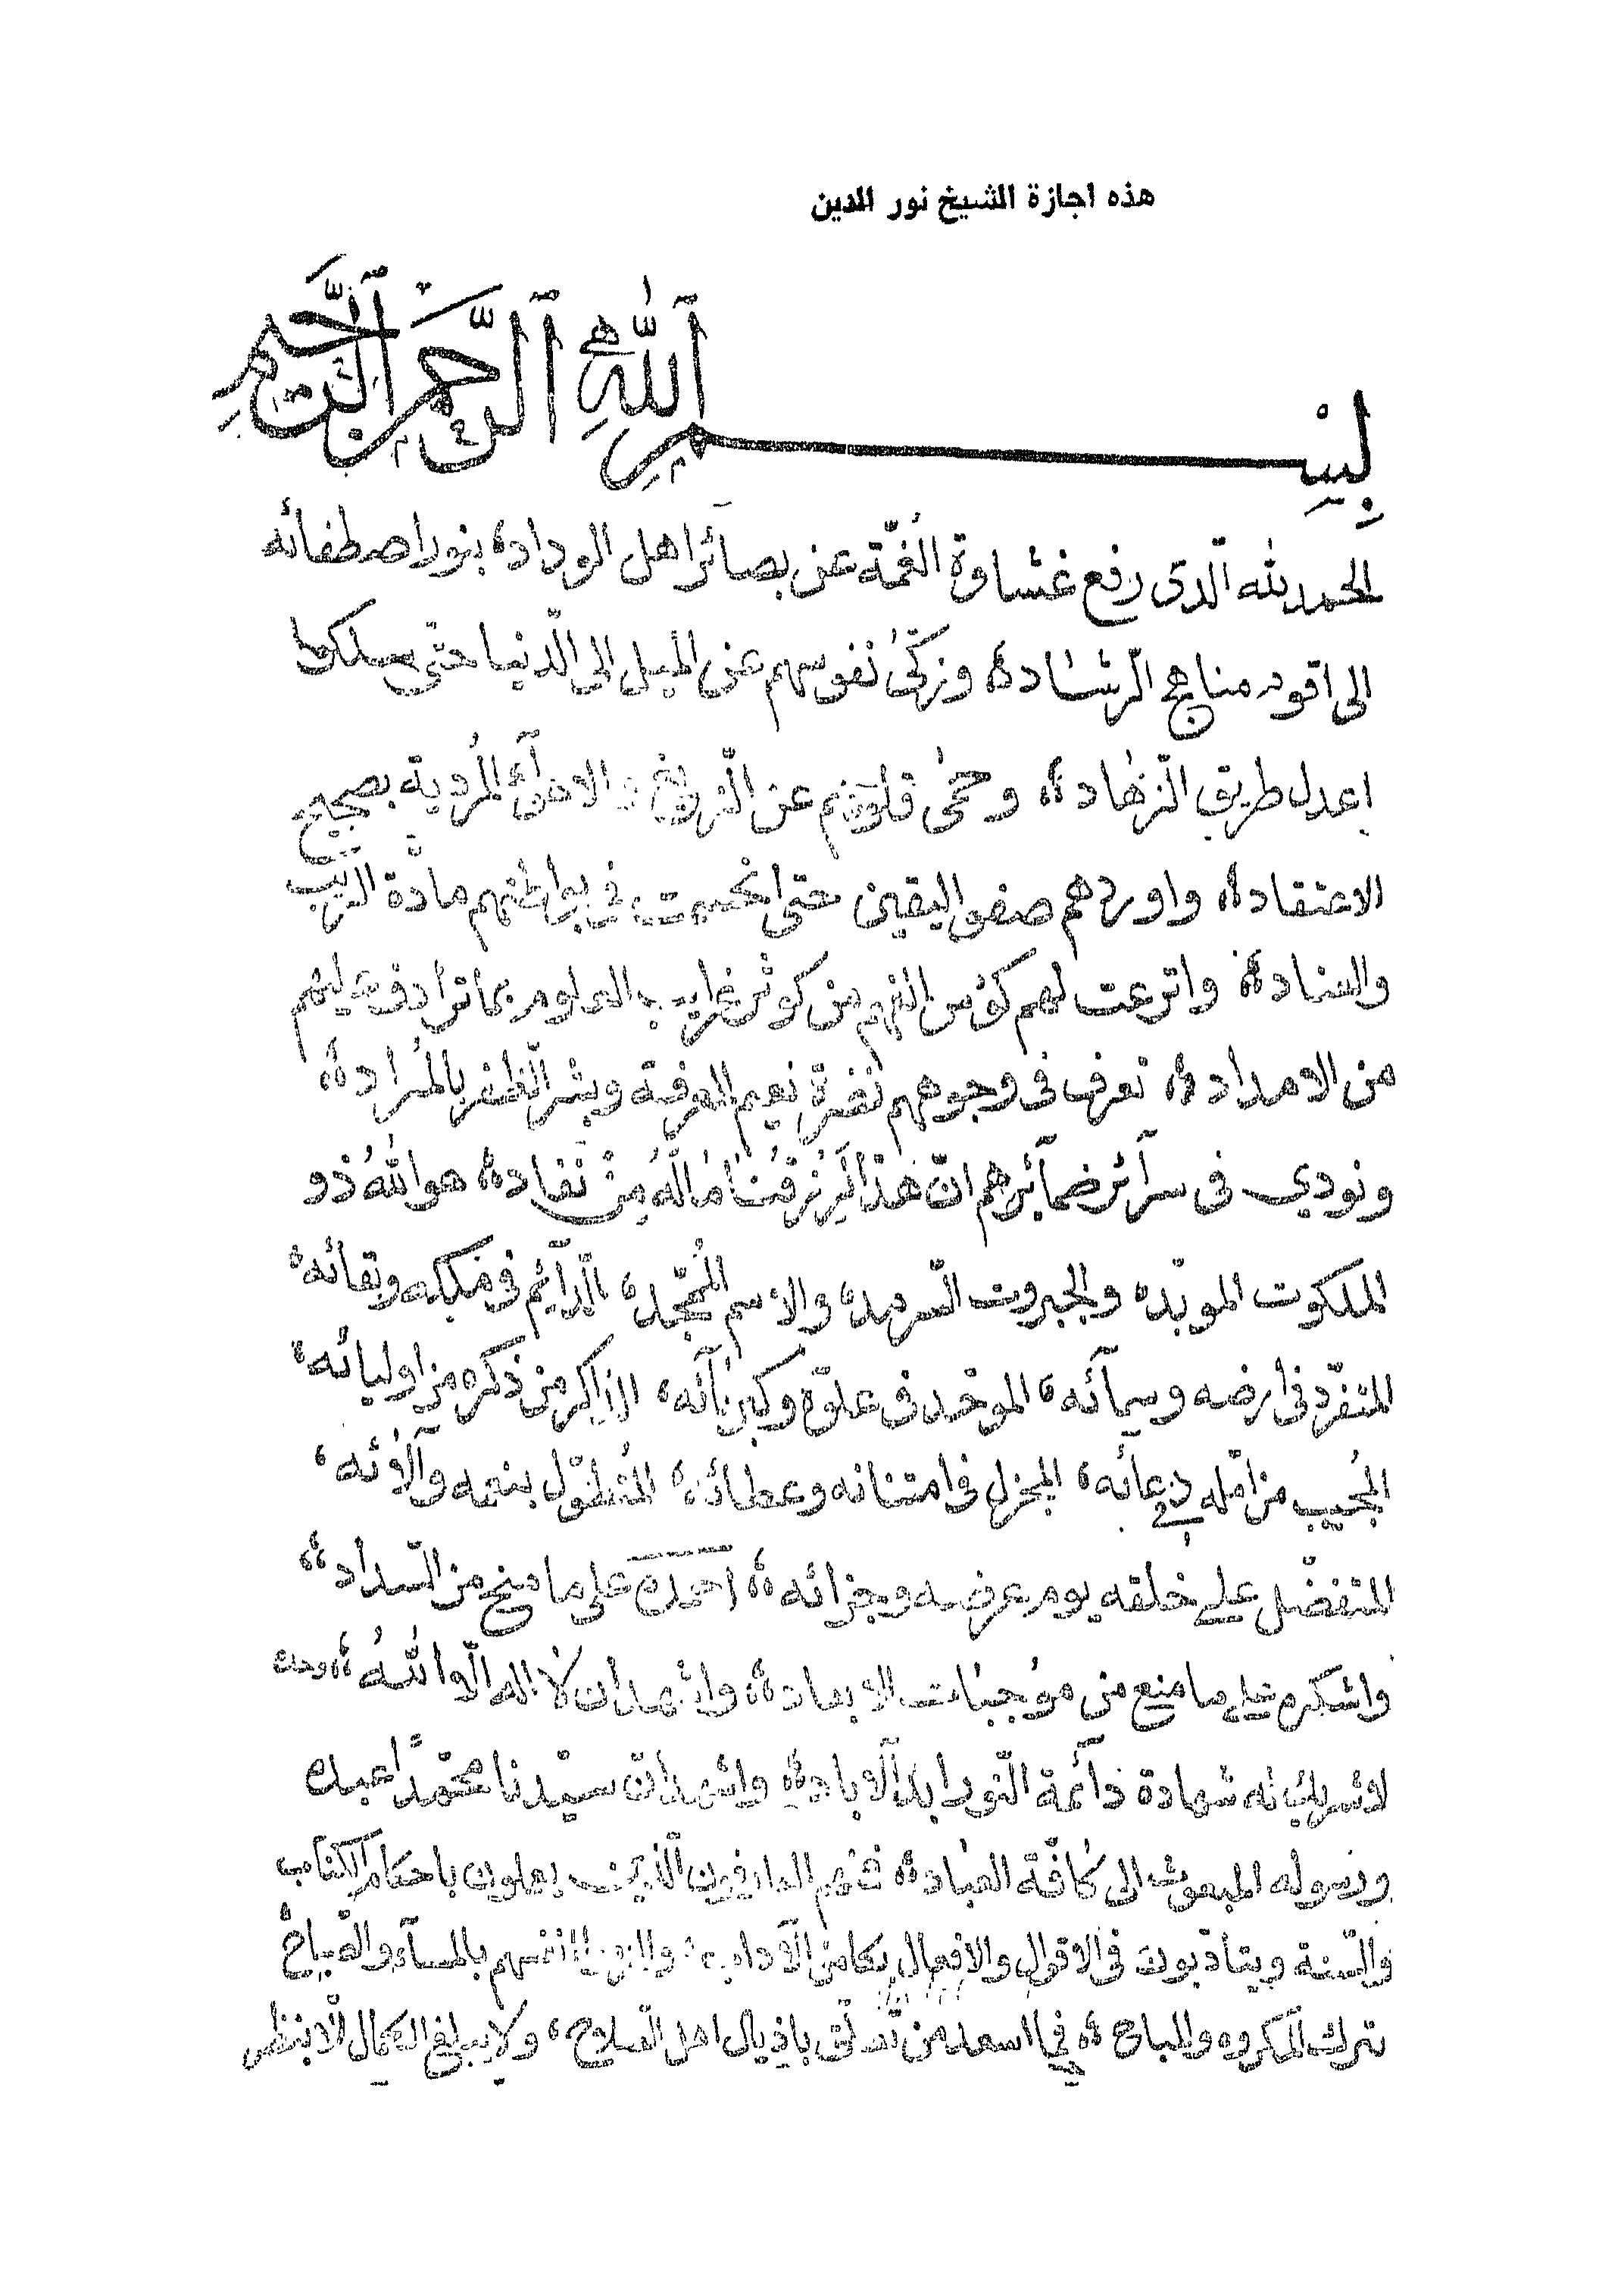 هذه اجازة الشيخ نور الدين
بسم الله الرحمن الرحيم
الحمد لله الذى رفع غشاوة الغمّة عن بصائر اهل الوداد، بنور اصطفائه
الى اقوم مناهج الرشاد، وزكّى نفوسهم عن الميل الى الدّنيا حتى سلكوا
اعدل طريق الزّهاد، وحمى قلوبهم عن الزيغ الاهوآء المردية بصحيح
الاعتقاد، واوردهم صفو اليقين حتى انحسمت فى بواطنهم مادّة الريب
والعناد، واترعت لهم كؤس الفهم من كوثر غرايب العلوم بما ترادف عليهم
من الامداد، تعرف فى وجوههم نضرة نعيم المعرفة وبشر الظفر بالمراد،
ونودي فى سرآئر ضمآئرهم انّ هٰذا لرزقنا ماله من نفاد، هو الله ذو
الملكوت المؤبّد، والجبروت السّرمد، والاسم الممجّد، الدآئم فى ملكه وبقائه،
المتفرّد فى ارضه وسمآئه، الموحّد فى علوّه وكبريآئه، الذاكر من ذكره من اوليائه،
المجيب من امّله فى دعآئه، المجزل فى امتنانه وعطائه، المتطوّل بنعمه وآلآئه،
المتفضّل على خلقه يوم عرضه وجزائه، احمده على ما منح من السّداد،
واشكره على ما منع من موجبات الابعاد، واشهد ان لا اله الّا الله، وحده
لا شريك له شهادة دآئمة النّور ابد الآباد، واشهد انّ سيّدنا محمّدًا عبده
ورسوله المبعوث الى كافّة العباد، فهم العارفون الّذين يعملون باحكام الكتاب
والسّنة ويتأدّبون فى الاقوال والافعال بكامل الآداب، انفسهم بالمسآء والصّباح
بترك المكروه والمباح، فيا اسعد من تعلّق باذيال اهل الصّلاح، ولا يبلغ الكمال الّا بنظر